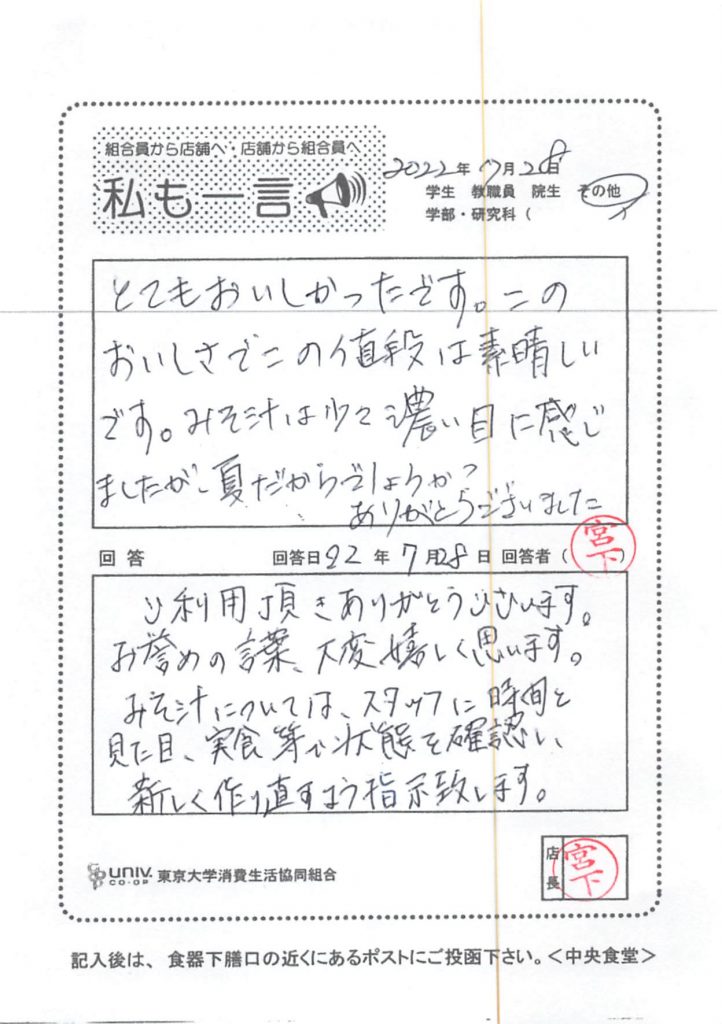 組合員から店舗へ・店舗から組合員へ
私も一言
2022年 7月28日
学生 教職員 院生 その他
学部・研究科（
とてもおいしかったです。この
おいしさでこの値段は素晴しい
です。みそ汁は少々濃い目に感じ
ましたが、夏だからでしょうか？
ありがとうございました
回答 回答日22年 7月28日 回答者（宮下）
ご利用頂きありがとうございます。
お誉めの言葉、大変嬉しく思います。
みそ汁については、スタッフに時間と
見た目、実食等で状態を確認し、
新しく作り直すよう指示致します。
UNIV. CO-OP 東京大学消費生活協同組合
店長 宮下
記入後は、食器下膳口の近くにあるポストにご投函下さい。＜中央食堂＞